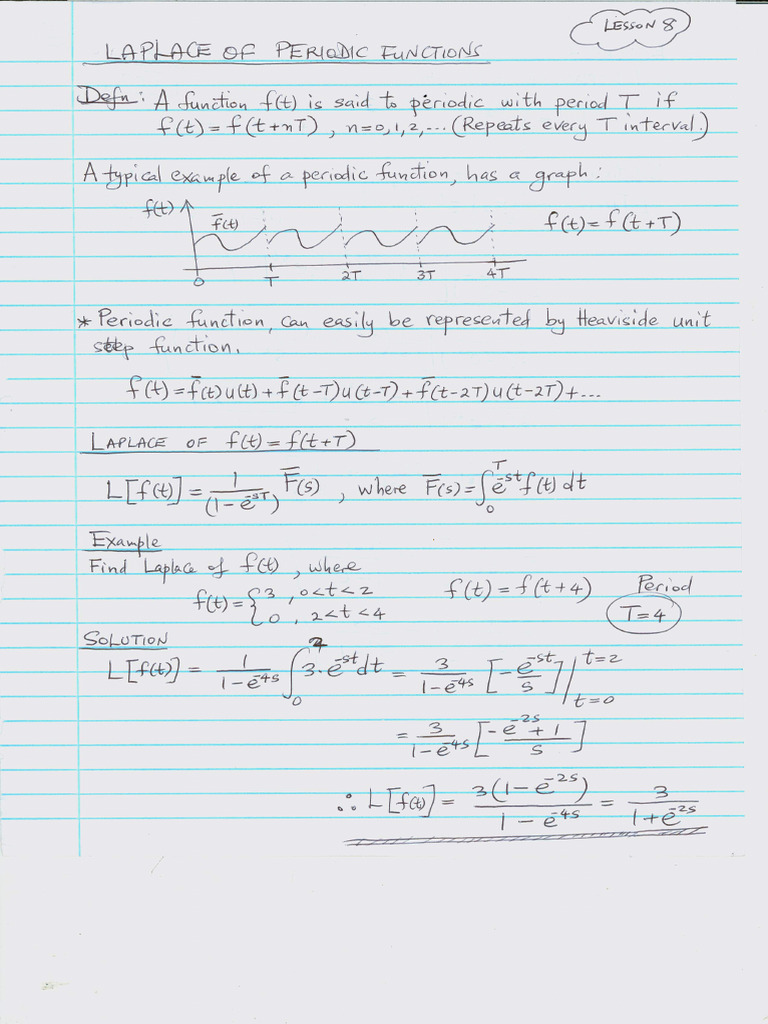 LESSON 8
LAPLACE OF PERIODIC FUNCTIONS
Defn: A function f(t) is said to periodic with period T if
f(t) = f(t+nT) , n=0,1,2,... (Repeats every T interval.)
A typical example of a periodic function, has a graph:
f(t) f̄(t) f(t) = f(t+T)
0 T 2T 3T 4T
* Periodic function, can easily be represented by Heaviside unit
step function.
f(t) = f̄(t)u(t) + f̄(t-T)u(t-T) + f̄(t-2T)u(t-2T) + ...
LAPLACE OF f(t) = f(t+T)
L[f(t)] = 1/(1-e^-sT) F̄(s) , where F̄(s) = ∫_0^T e^-st f(t) dt
Example
Find Laplace of f(t), where
f(t) = {3 , 0<t<2 f(t) = f(t+4) Period
0 , 2<t<4 T=4
SOLUTION
L[f(t)] = 1/(1-e^-4s) ∫_0^2 3·e^-st dt = 3/(1-e^-4s) [-e^-st/s] |_t=0^t=2
= 3/(1-e^-4s) [(-e^-2s + 1)/s]
∴ L[f(t)] = 3(1-e^-2s)/(1-e^-4s) = 3/(1+e^-2s)